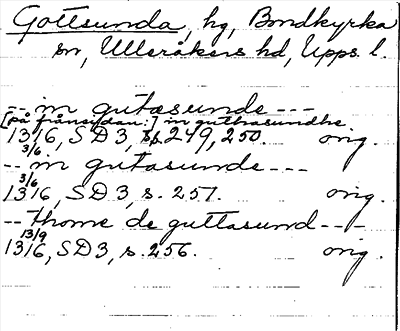 Gottsunda, hg, Bondkyrka
sn, Ulleråkers hd, Upps. l.
-- in gutæsunde ---
[på frånsidan:] in guthrasundhe
1316, 3/6, SD 3, s. 249, 250. orig.
-- in gutasunde ---
1316, 3/6, SD 3, s. 251. orig.
-- thome de guttasund --
1316, 13/9, SD 3, s. 256. orig.